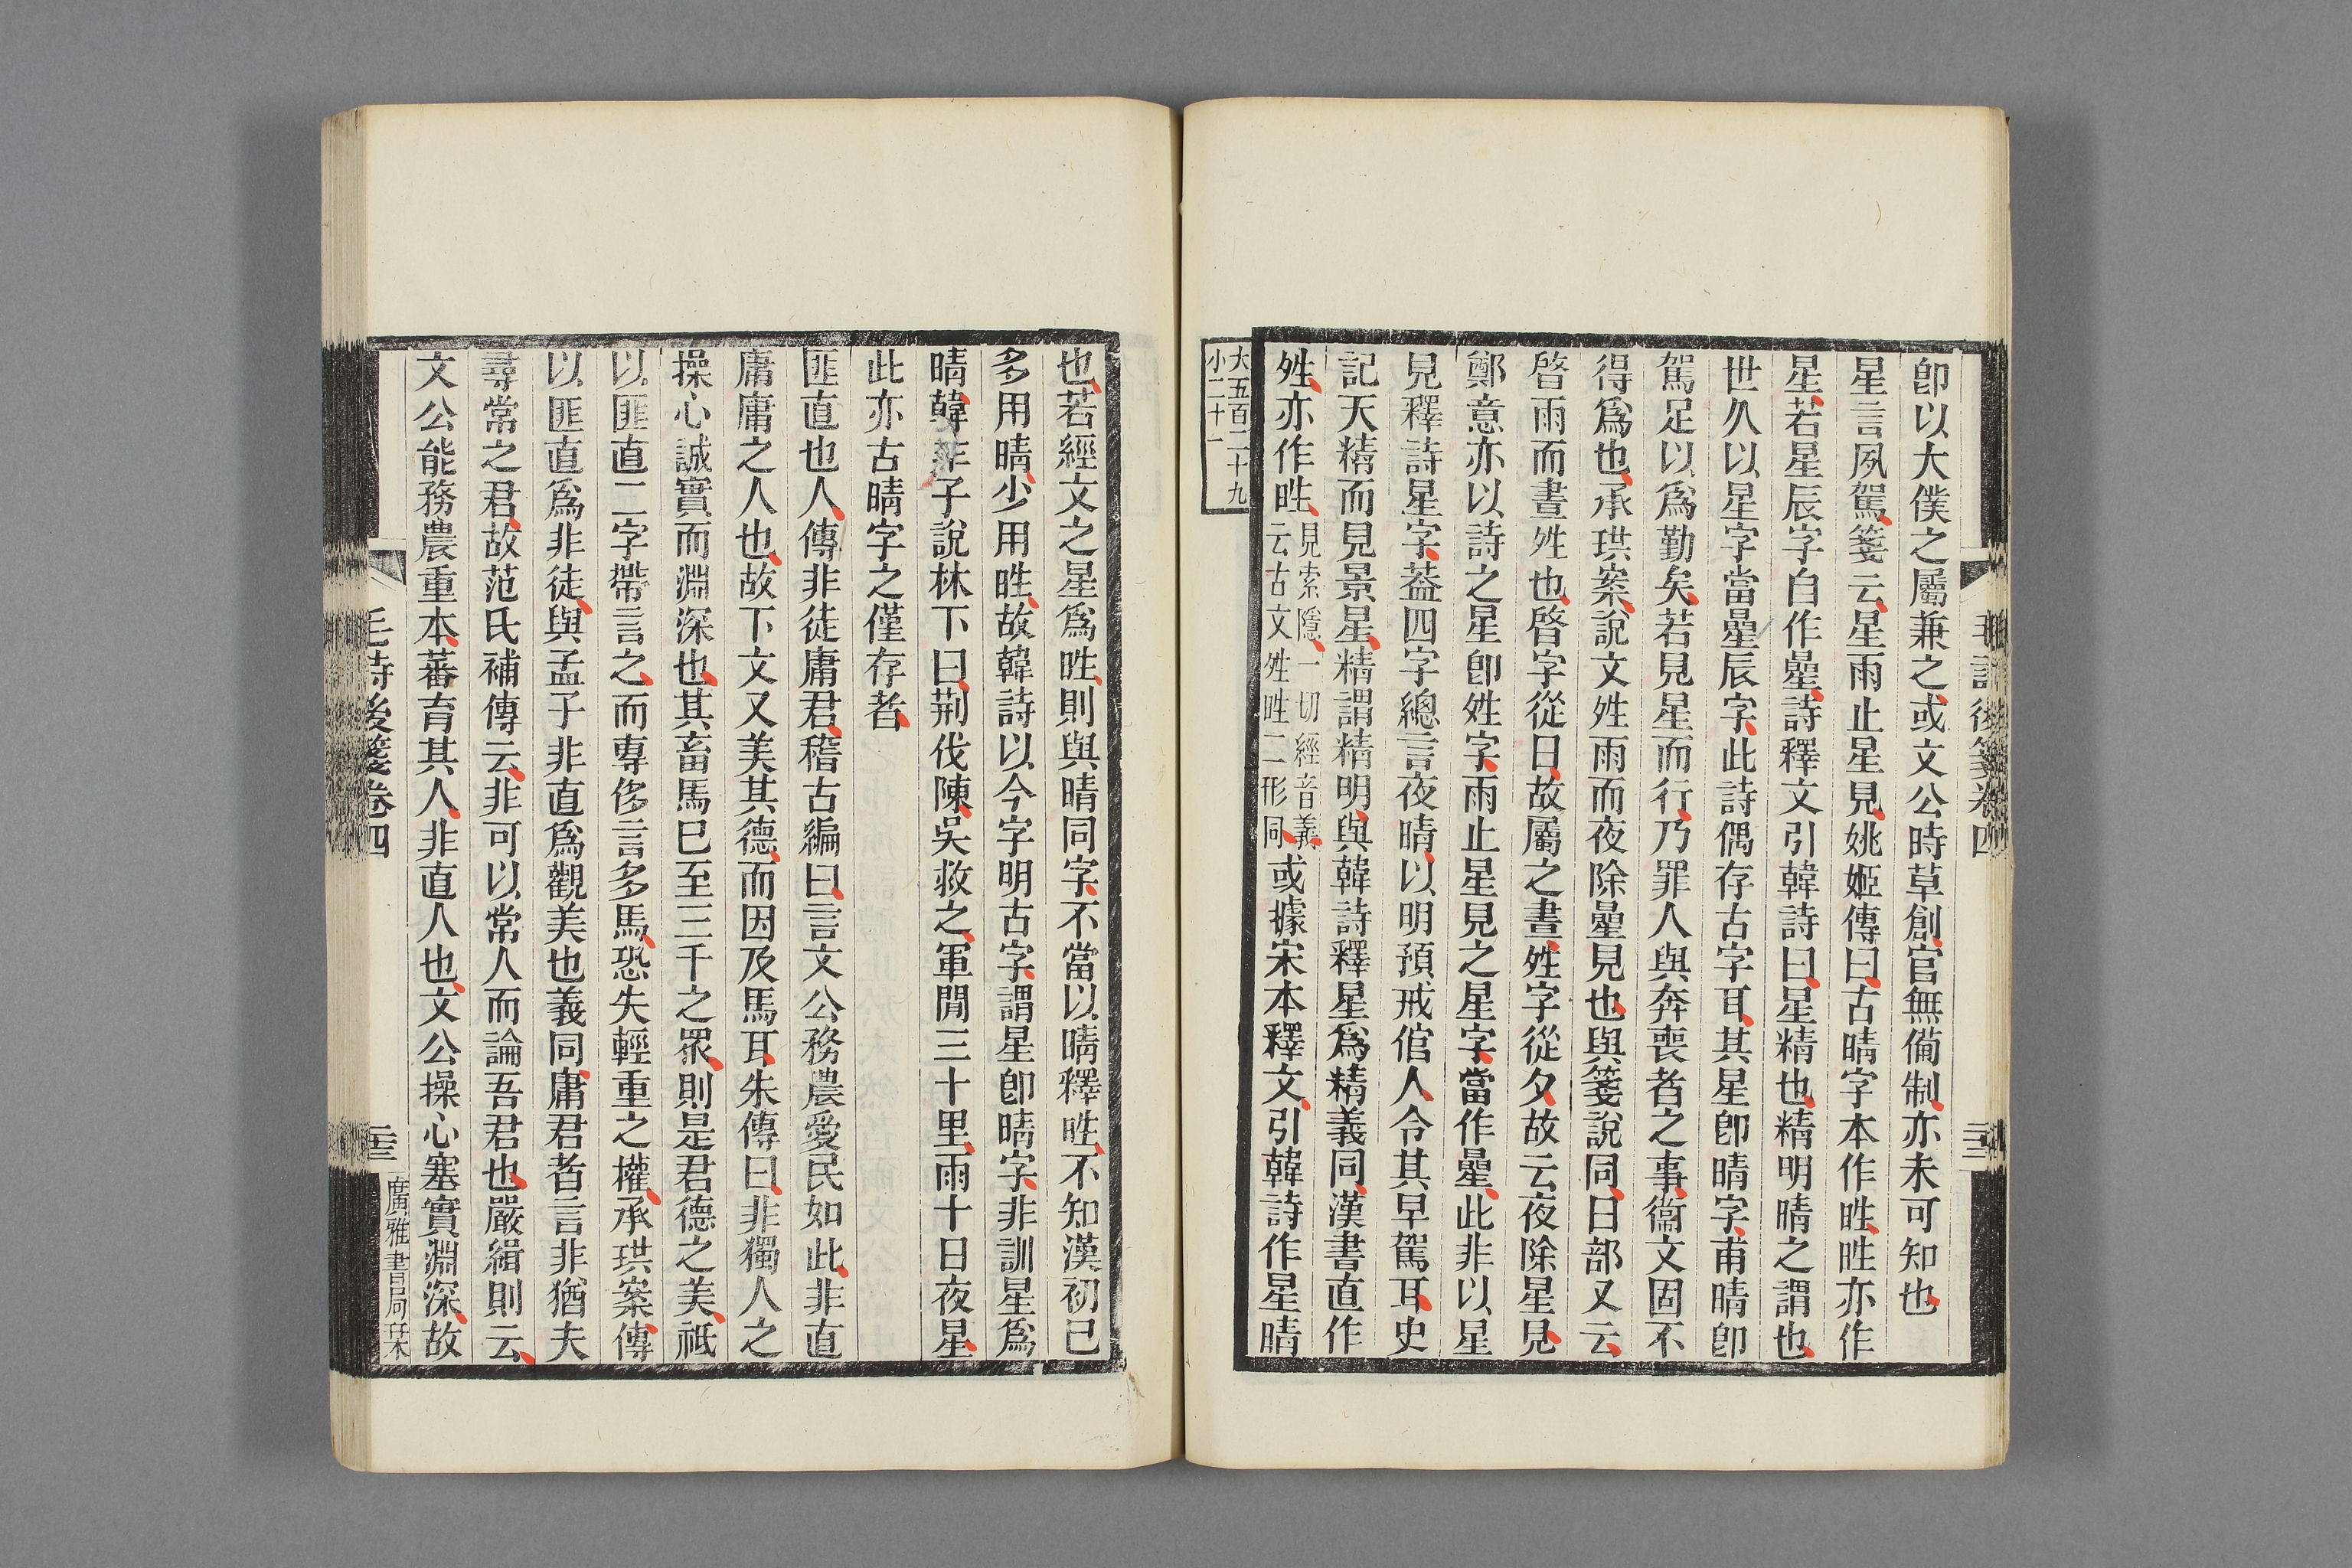 卽以大僕之屬兼之或文公時草創官無備制亦未可知也
星言夙駕箋云星雨止星見姚姬傳曰古晴字本作暒暒亦作
星若星辰字自作曐詩釋文引韓詩曰星精也精明晴之謂也
世久以星字當曐辰字此詩偶存古字耳其星卽晴字甫晴卽
駕足以爲勤矣若見星而行乃罪人與奔喪者之事衞文固不
得爲也承珙案說文姓雨而夜除曐見也與箋說同日部又云
啓雨而晝姓也啓字從日故屬之晝姓字從夕故云夜除星見
鄭意亦以詩之星卽姓字雨止星見之星字當作曐此非以星
見釋詩星字葢四字總言夜晴以明預戒倌人令其早駕耳史
記天精而見景星精謂精明與韓詩釋星爲精義同漢書直作
姓亦作暒見索隱一切經音義云古文姓暒二形同或據宋本釋文引韓詩作星晴
大五百二十九
小二十一
也若經文之星爲暒則與晴同字不當以晴釋暒不知漢初已
多用晴少用暒故韓詩以今字明古字謂星卽晴字非訓星爲
晴韓非子說林下曰荆伐陳吳救之軍閒三十里雨十日夜星
此亦古晴字之僅存者
匪直也人傳非徒庸君稽古編曰言文公務農愛民如此非直
庸庸之人也故下文又美其德而因及馬耳朱傳曰非獨人之
操心誠實而淵深也其畜馬已至三千之眾則是君德之美祗
以匪直二字帶言之而專侈言多馬恐失輕重之權承珙案傳
以匪直爲非徒與孟子非直爲觀美也義同庸君者言非猶夫
尋常之君故范氏補傳云非可以常人而論吾君也嚴緝則云
文公能務農重本蕃育其人非直人也文公操心塞實淵深故
毛詩後箋卷四
廣雅書局栞